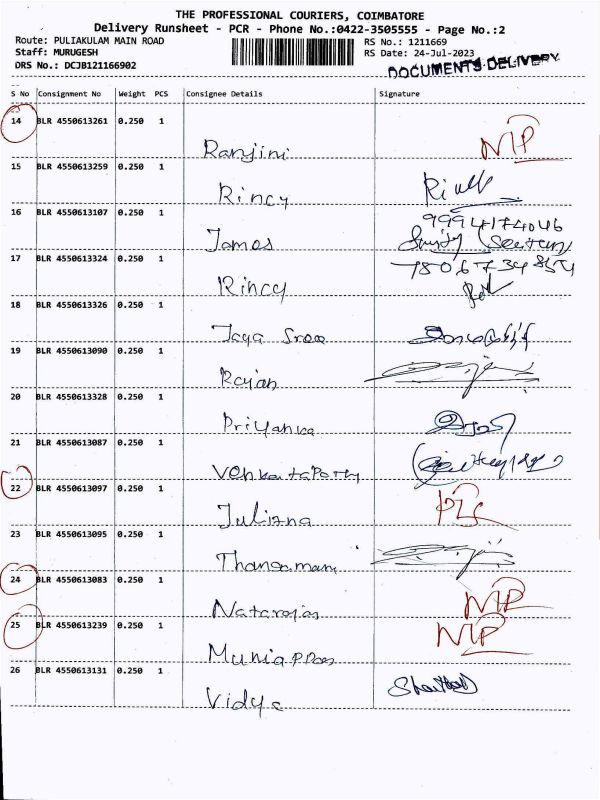 THE PROFESSIONAL COURIERS, COIMBATORE
Delivery Runsheet - PCR - Phone No.:0422-3505555 - Page No.:2
Route: PULIAKULAM MAIN ROAD
RS No.: 1211669
Staff: MURUGESH
RS Date: 24-Jul-2023
DRS No.: DCJB121166902
DOCUMENTS DELIVERY
S No Consignment No Weight PCS Consignee Details Signature
14 BLR 4550613261 0.250 1
Ranjini NIP
15 BLR 4550613259 0.250 1
Rincy
16 BLR 4550613107 0.250 1
James
17 BLR 4550613324 0.250 1
Rincy
18 BLR 4550613326 0.250 1
Jaya Sree
19 BLR 4550613090 0.250 1
Rajan
20 BLR 4550613328 0.250 1
Priyanka
21 BLR 4550613087 0.250 1
Venkatapathy
22 BLR 4550613097 0.250 1
Juliana
23 BLR 4550613095 0.250 1
Thangamani
24 BLR 4550613083 0.250 1
Natarajan NIP
25 BLR 4550613239 0.250 1 NIP
Muniappan
26 BLR 4550613131 0.250 1
Vidya